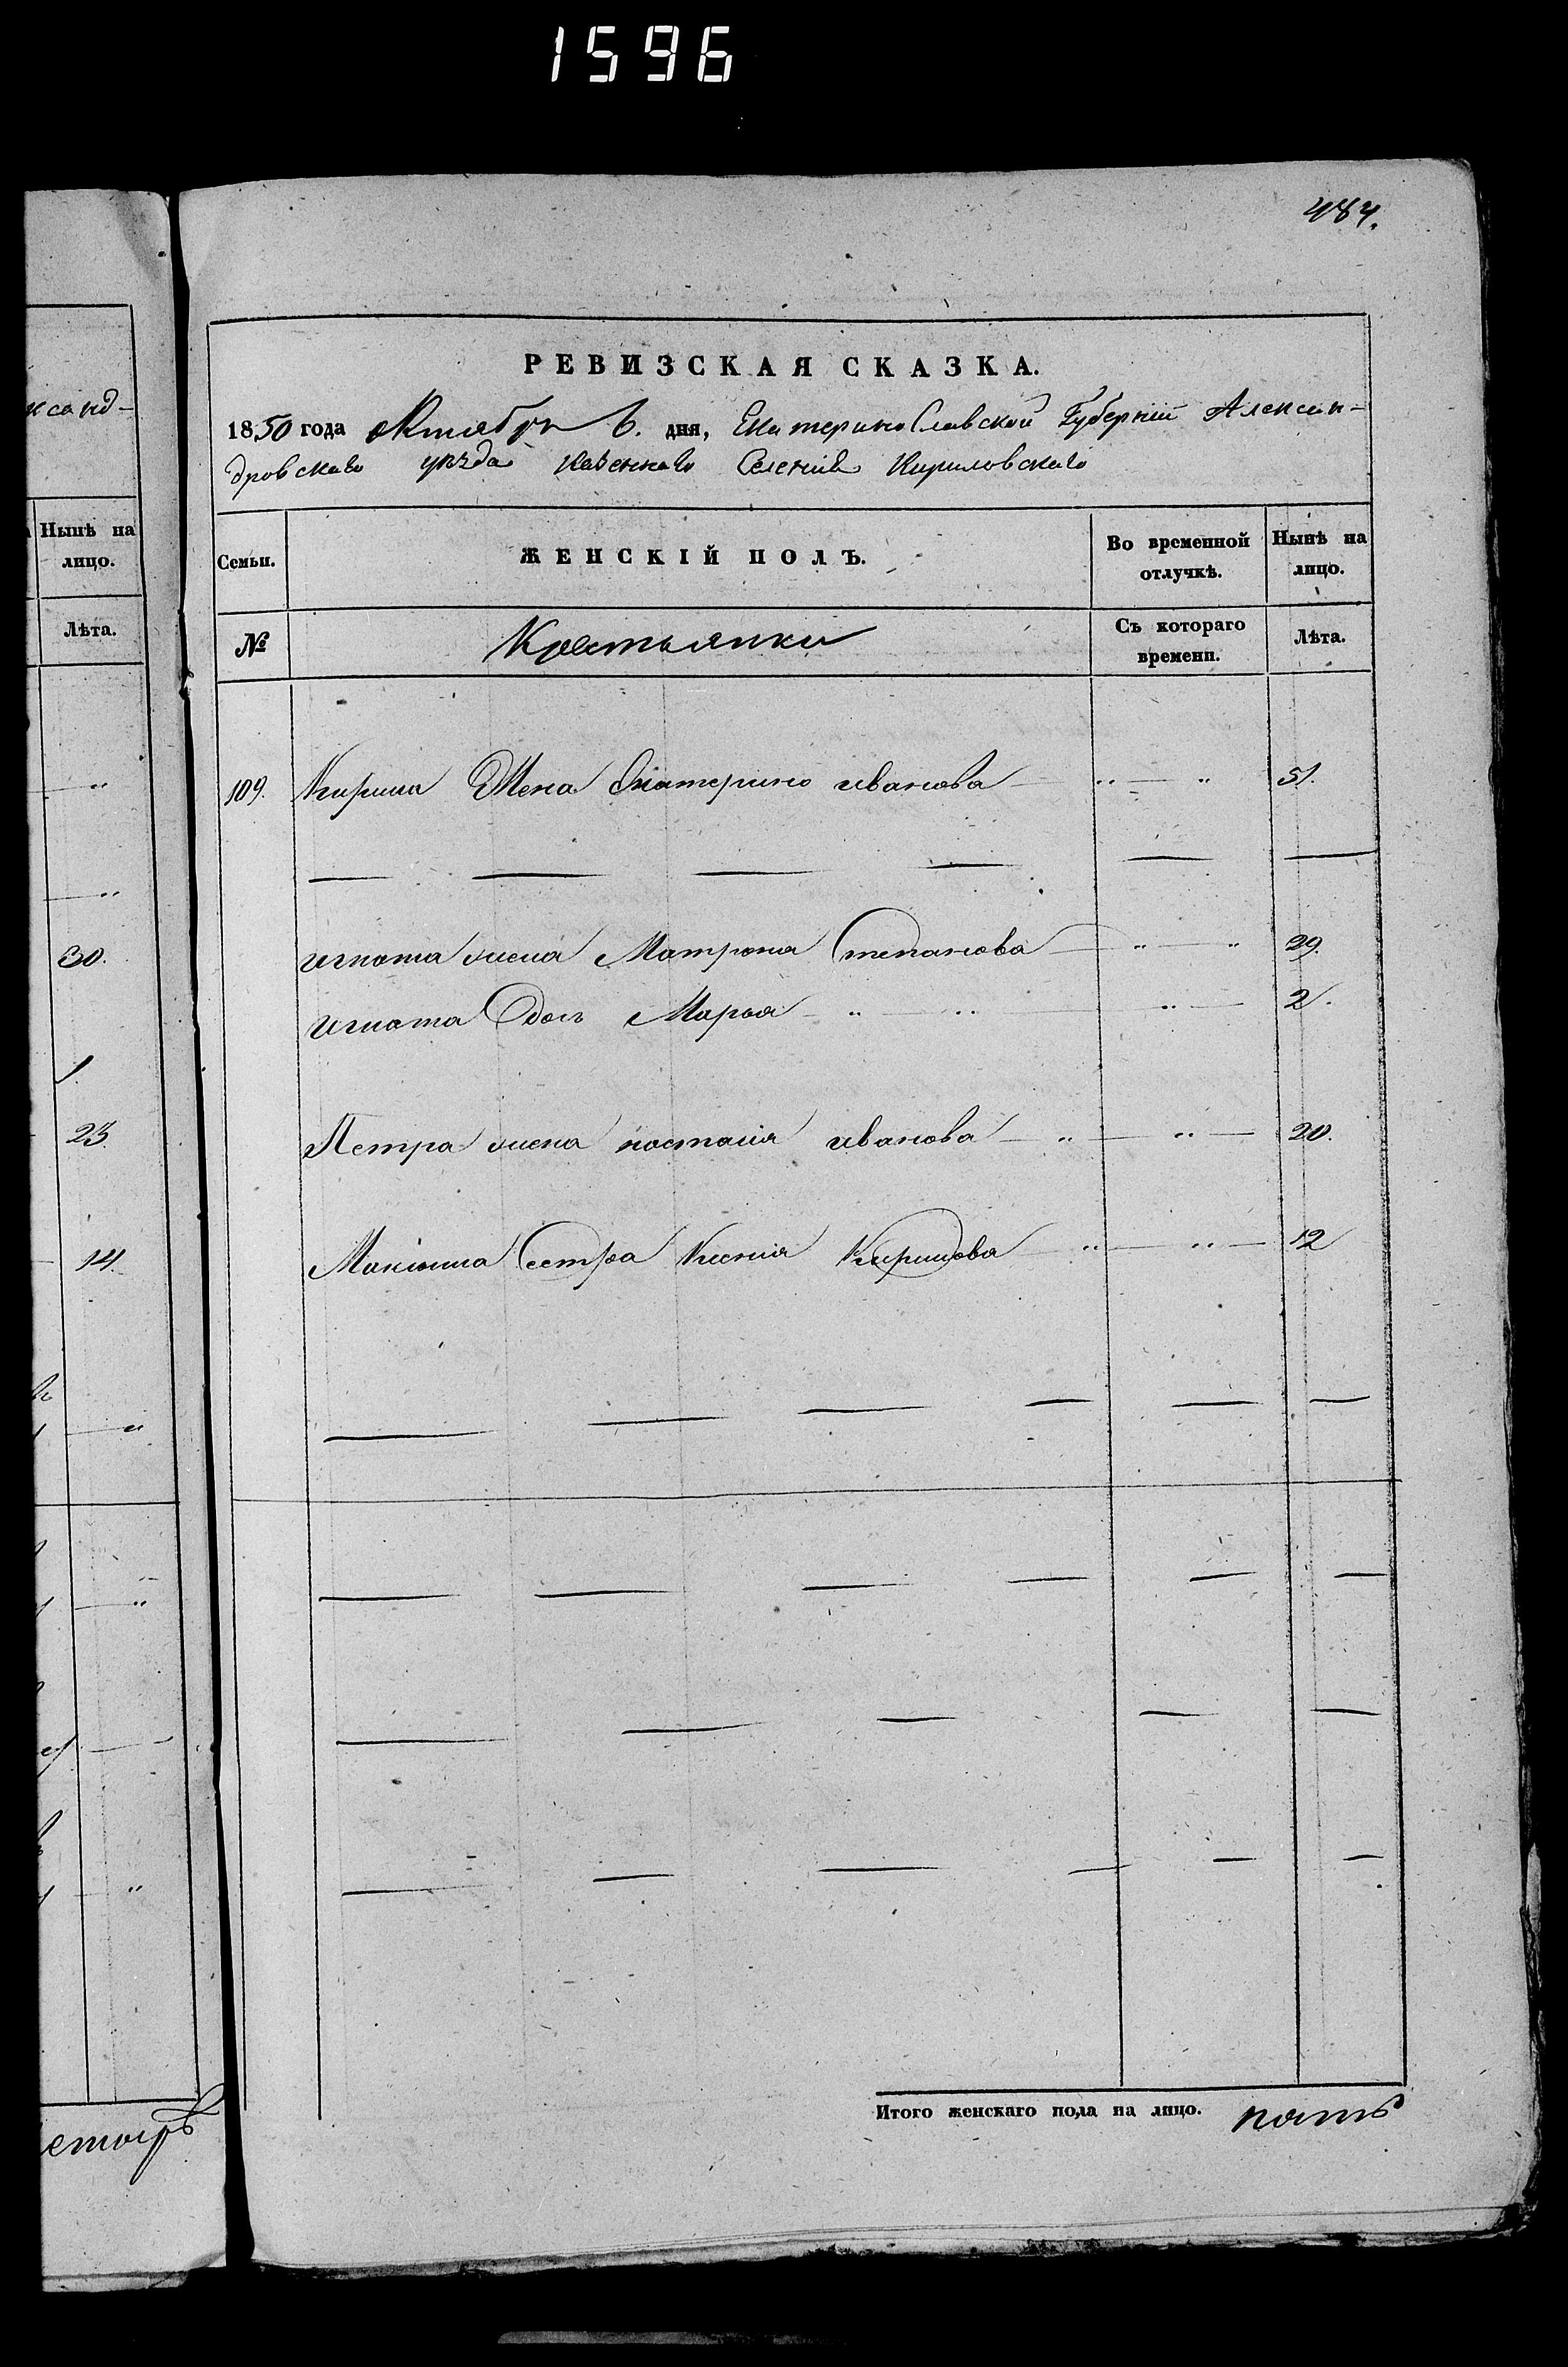 1596
484.
ксанд-
Нынѣ на
лицо.
Лѣта.
30.
1.
23.
14.
РЕВИЗСКАЯ СКАЗКА.
1850 года октября 6. дня, Екатеринославской Губерніи Алексан-
дровскаго уѣзда казеннаго Селенія Кириловскаго
Семьи.
ЖЕНСКІЙ ПОЛЪ.
Во временной
отлучкѣ.
Нынѣ на
лицо.
№
Крестьянки
Съ котораго
времени.
Лѣта.
109. Кирила Жена Екатерина иванова 51.
игната жена Матрона Степанова 29.
игната Дочь Марья 2.
Петра жена настасія иванова 20.
Сестра Ксенія Кирилова 12
Итого женскаго пола на лицо. пять